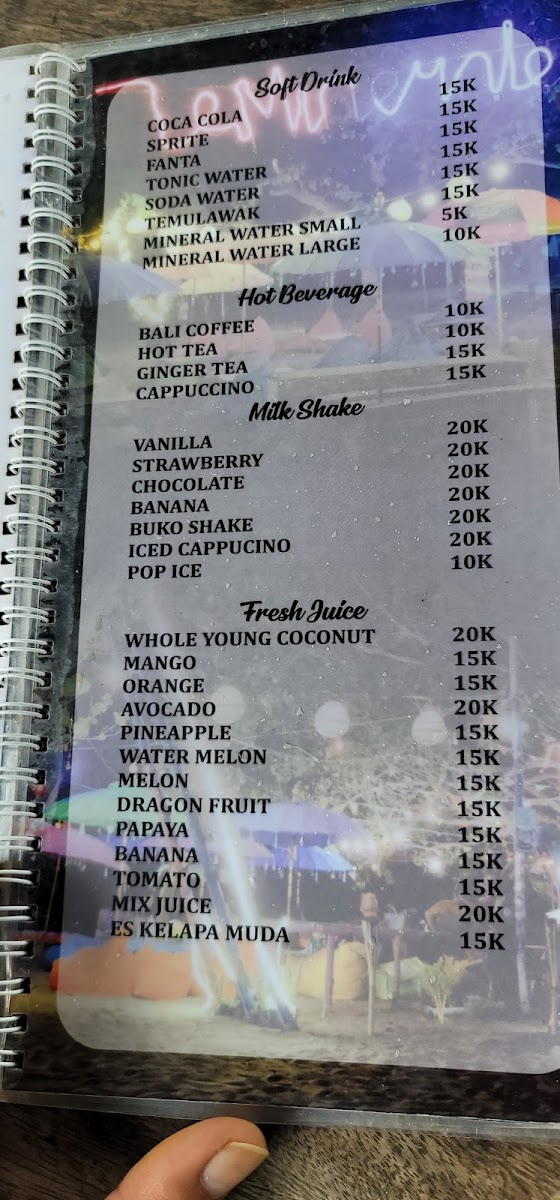 Soft Drink
COCA COLA 15K
SPRITE 15K
FANTA 15K
TONIC WATER 15K
SODA WATER 15K
TEMULAWAK 15K
MINERAL WATER SMALL 5K
MINERAL WATER LARGE 10K
Hot Beverage
BALI COFFEE 10K
HOT TEA 10K
GINGER TEA 15K
CAPPUCCINO 15K
Milk Shake
VANILLA 20K
STRAWBERRY 20K
CHOCOLATE 20K
BANANA 20K
BUKO SHAKE 20K
ICED CAPPUCINO 20K
POP ICE 10K
Fresh Juice
WHOLE YOUNG COCONUT 20K
MANGO 15K
ORANGE 15K
AVOCADO 20K
PINEAPPLE 15K
WATER MELON 15K
MELON 15K
DRAGON FRUIT 15K
PAPAYA 15K
BANANA 15K
TOMATO 15K
MIX JUICE 20K
ES KELAPA MUDA 15K